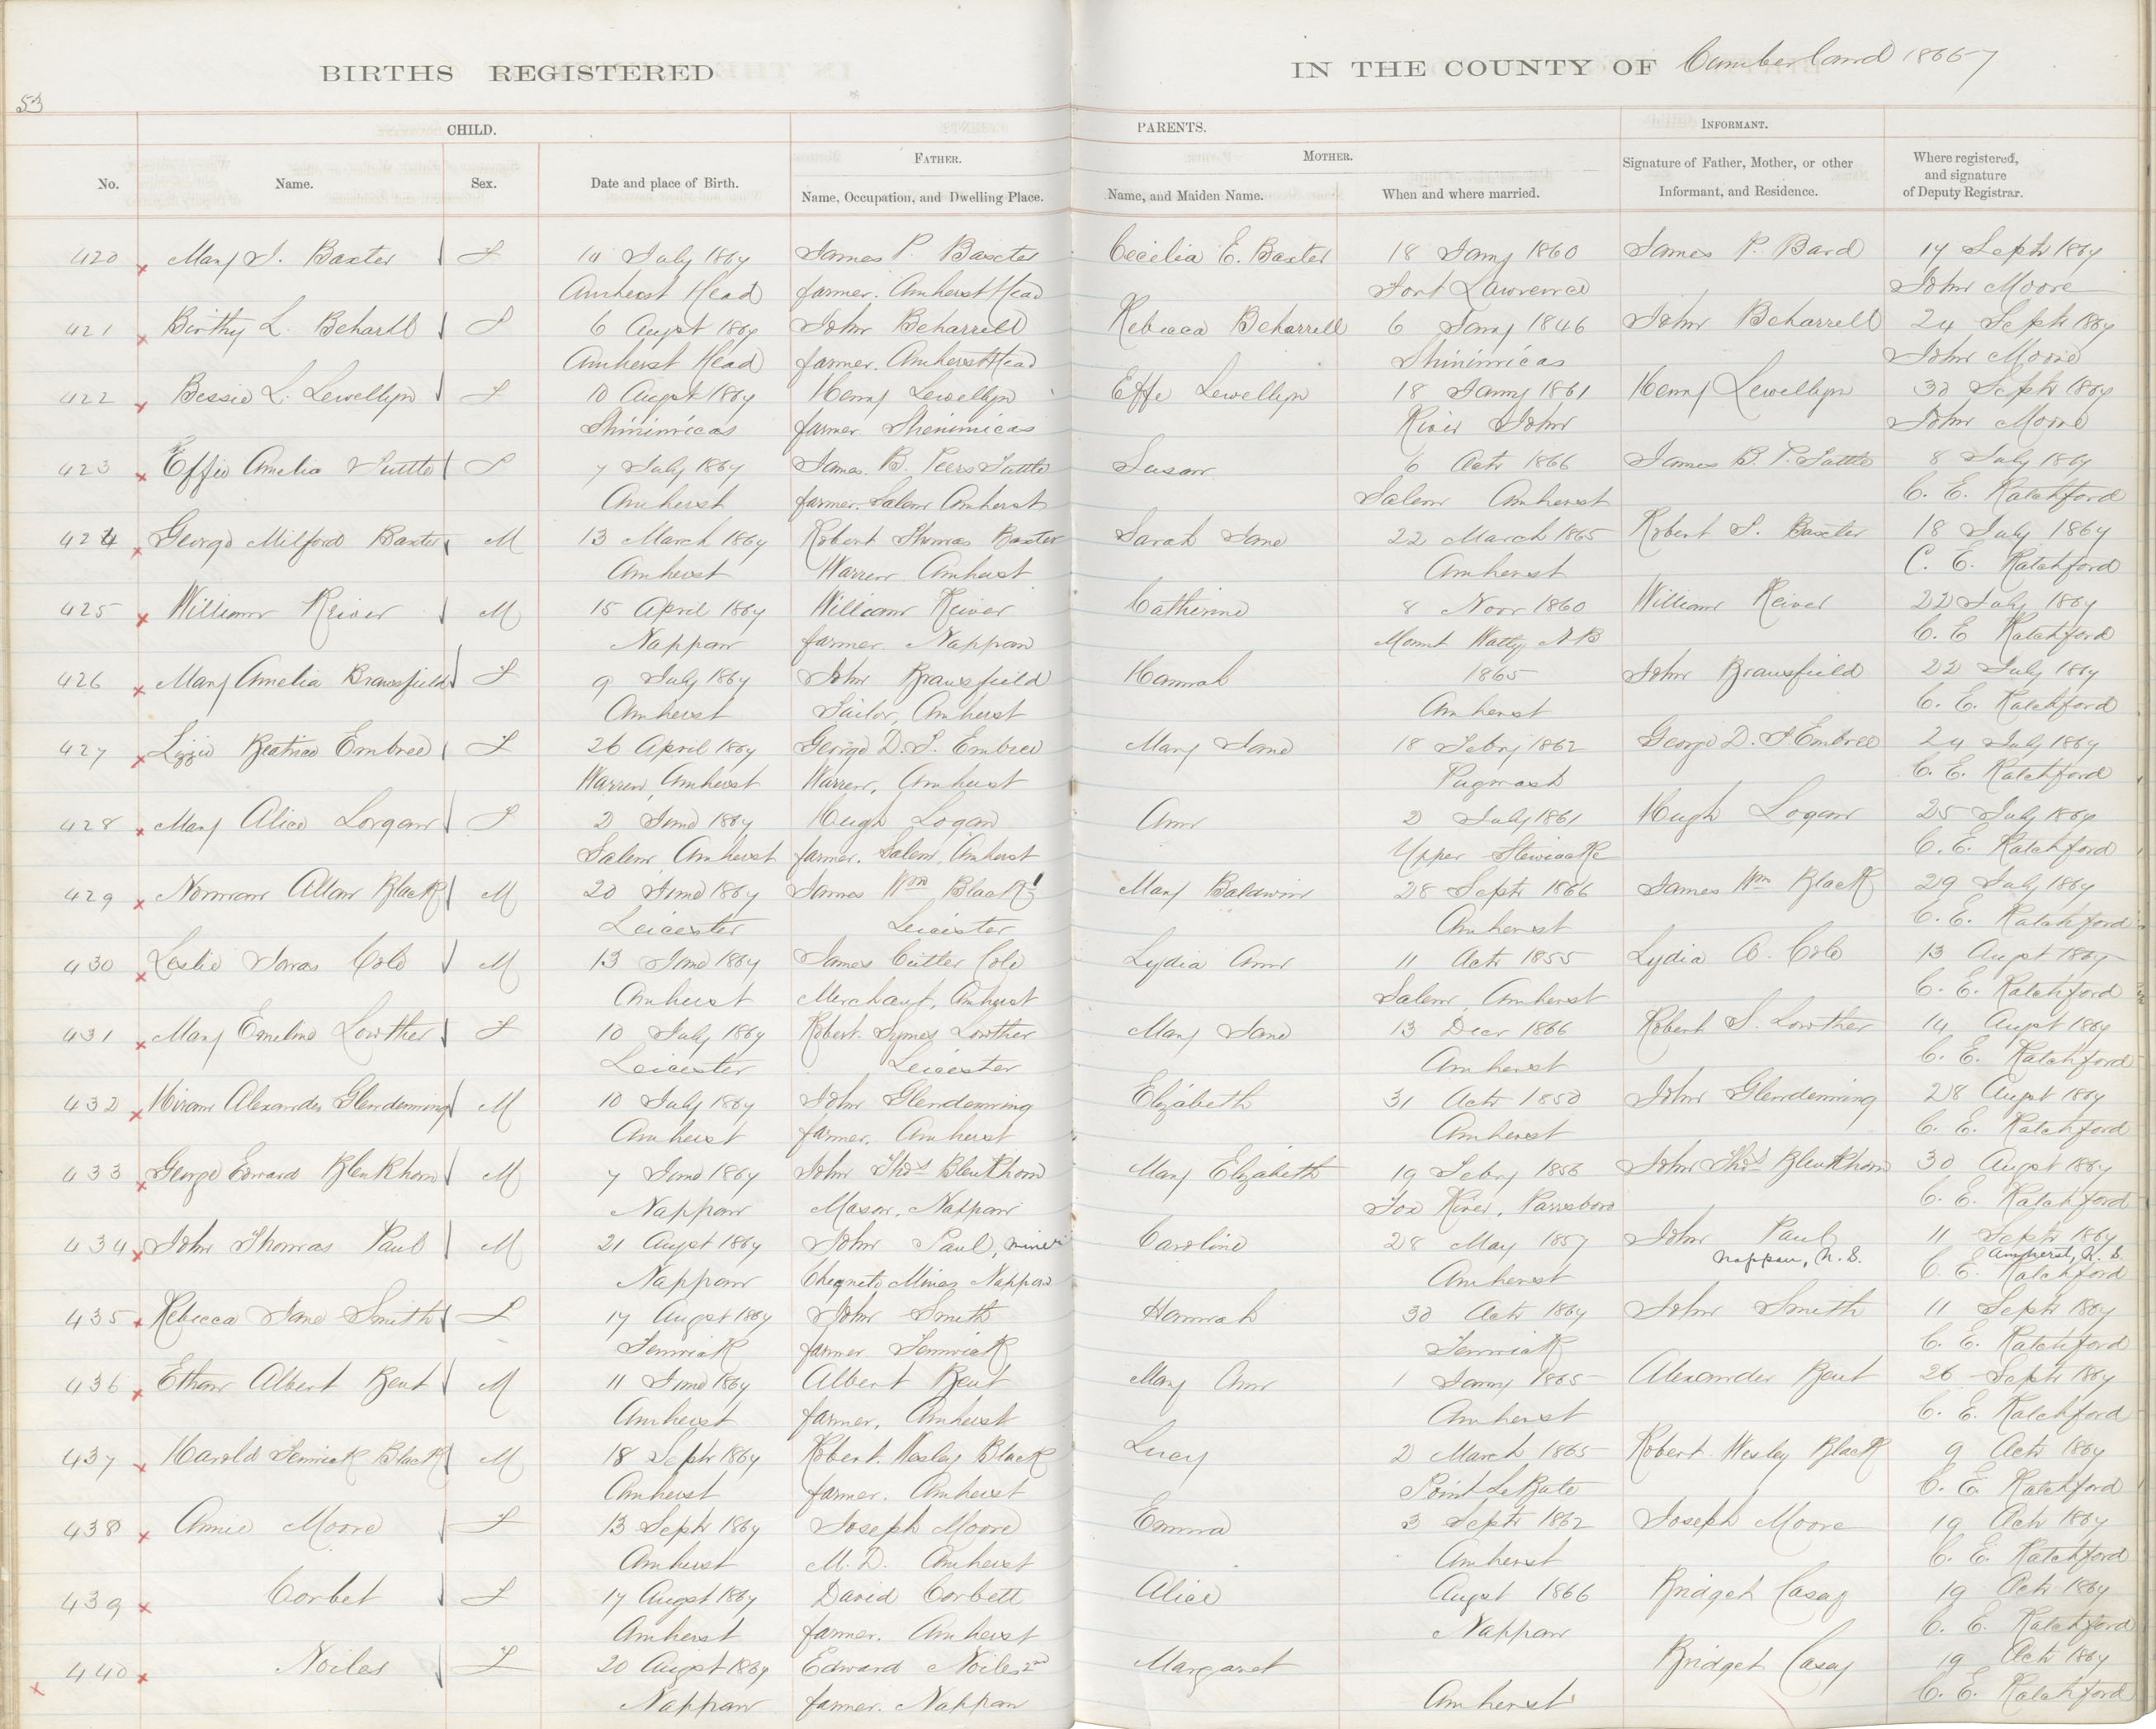 BIRTHS REGISTERED
IN THE COUNTY OF Cumberland 1867
53
CHILD.
PARENTS.
INFORMANT.
No.
Name.
Sex.
Date and place of Birth.
FATHER.
Name, Occupation, and Dwelling Place.
MOTHER.
Name, and Maiden Name.
When and where married.
Signature of Father, Mother, or other
Informant, and Residence.
Where registered,
and signature
of Deputy Registrar.
420 Mary J. Baxter F 14 July 1867 James P. Baxter Cecilia E. Baxter 18 Jany 1860 James P. Bard 17 Septr 1867
Amherst Head farmer. Amherst Head Fort Lawrence John Moore
421 Birthy L. Beharell F 6 Augst 1867 John Beharrell Rebecca Beharrell 6 Jany 1846 John Beharrell 24 Septr 1867
Amherst Head farmer. Amherst Head Shinimicas John Moore
422 Bessie L. Lewellyn F 10 Augst 1867 Henry Lewellyn Effe Lewellyn 18 Jany 1861 Henry Lewellyn 30 Septr 1867
Shinimicas farmer Shenimicas River John John Moore
423 Effie Amelia Tuttle F 7 July 1867 James. B. Peers Tuttle Susan 6 Octr 1866 James B. P. Tuttle 8 July 1867
Amherst farmer. Salem Amherst Salem Amherst C. E. Ratchford
424 George Milford Baxter M 13 March 1867 Robert Thomas Baxter Sarah Jane 22 March 1865 Robert T. Baxter 18 July 1867
Amherst Warren Amherst Amherst C. E. Ratchford
425 William Reiver M 15 April 1867 William Reiver Catherine 8 Novr 1860 William Reiver 22 July 1867
Nappan farmer. Nappan Mount Watty N B C. E Ratchford
426 Mary Amelia Bransfield F 9 July 1867 John Bransfield Hannah 1865 John Bransfield 22 July 1867
Amherst Sailor, Amherst Amherst C. E. Ratchford
427 Lizzie Beatrice Embree F 26 April 1867 George D. F. Embree Mary Jane 18 Febry 1862 George D. F. Embree 24 July 1867
Warren, Amherst Warren, Amherst Pugwash C. E. Ratchford
428 Mary Alice Lorgan F 2 June 1867 Hugh Logan Ann 2 July 1861 Hugh Logan 25 July 1867
Salem Amherst farmer. Salem, Amherst Upper Stewiacke C. E. Ratchford
429 Norman Allan Black M 20 June 1867 James Wm Black Mary Baldwin 28 Septr 1866 James Wm Black 29 July 1867
Leicester Leicester Amherst C. E. Ratchford
430 Leslie Jarras Cole M 13 June 1867 James Cutler Cole Lydia Ann 11 Octr 1855 Lydia A. Cole 13 Augst 1867
Amherst Merchant, Amherst Salem, Amherst C. E. Ratchford
431 Mary Emeline Lowther F 10 July 1867 Robert. Symes Lowther Mary Jane 13 Decr 1866 Robert S. Lowther 14 Augst 1867
Leicester Leicester Amherst C. E. Ratchford
432 Hiram Alexander Glendenning M 10 July 1867 John Glendenning Elizabeth 31 Octr 1850 John Glendenning 28 Augst 1867
Amherst farmer. Amherst Amherst C. E. Ratchford
433 George Edward Blenkhorn M 7 June 1867 John Thos Blenkhorn Mary Elizabeth 19 Febry 1856 John Thos Blenkhorn 30 Augst 1867
Nappan Mason, Nappan Fox River, Parrsboro C. E. Ratchford
434 John Thomas Paul M 21 Augst 1867 John Paul, miner Caroline 28 May 1857 John Paul 11 Septr 1867
Nappan, N. S. Amherst, N. S.
Nappan Chegneto Mines Nappan Amherst C. E. Ratchford
435 Rebecca Jane Smith F 17 Augst 1867 John Smith Hannah 30 Octr 1864 John Smith 11 Septr 1867
Fenwick farmer. Fenwick Fenwick C. E. Ratchford
436 Ethan Albert Bent M 11 June 1867 Albert Bent Mary Ann 1 Jany 1865 Alexander Bent 26 Septr 1867
Amherst farmer, Amherst Amherst C. E. Ratchford
437 Harold Fenwick Black M 18 Septr 1867 Robert. Wesley Black Lucy 2 March 1865 Robert Wesley Black 9 Octr 1867
Amherst farmer. Amherst Point LeBute C. E. Ratchford
438 Annie Moore F 13 Septr 1867 Joseph Moore Emma 3 Septr 1862 Joseph Moore 19 Octr 1867
Amherst M. D. Amherst Amherst C. E. Ratchford
439 Corbet F 17 Augst 1867 David Corbett Alice Augst 1866 Bridget Casey 19 Octr 1867
Amherst farmer. Amherst Nappan C. E. Ratchford
440 Noiles F 20 Augst 1867 Edward Noiles 2nd Margaret Bridget Casey 19 Octr 1867
Nappan farmer. Nappan Amherst C. E. Ratchford